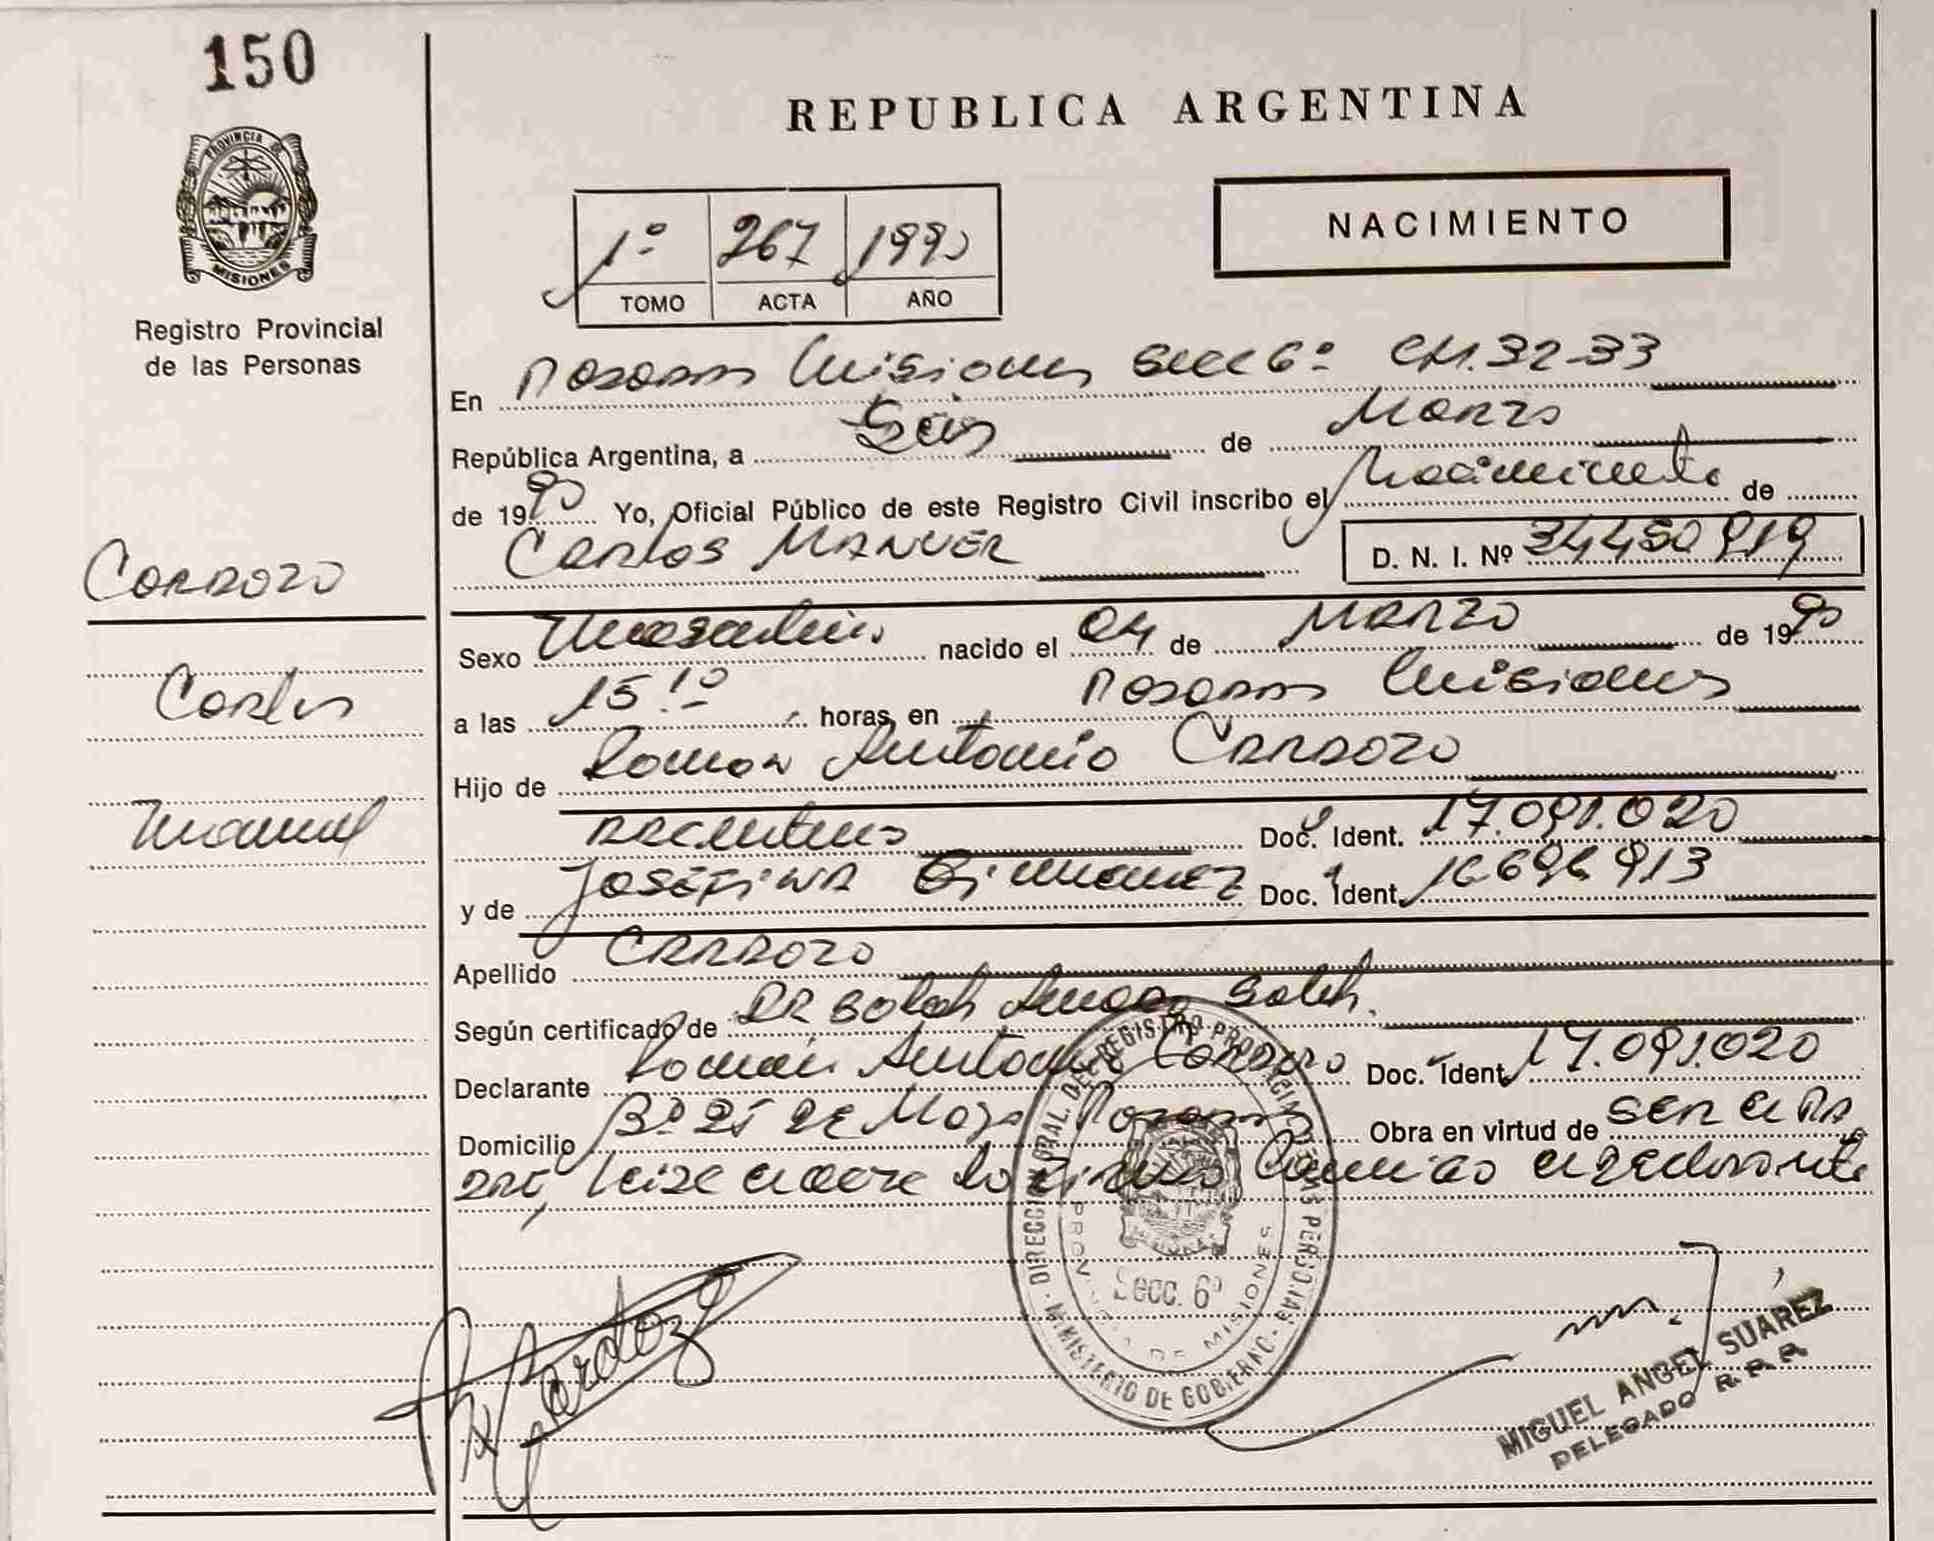 150
REPUBLICA ARGENTINA
PROVINCIA DE
MISIONES
Registro Provincial
de las Personas
NACIMIENTO
1º 267 1990
TOMO ACTA AÑO
En Posadas Misiones Secc 6º CH. 32-33
República Argentina, a Seis de Marzo
de 1990 Yo, Oficial Público de este Registro Civil inscribo el Nacimiento de
Carlos MANUEL D. N. I. Nº 34.450.919
Cardozo
Carlos
Manuel
Sexo Masculino nacido el 04 de MARZO de 1990
a las 15.10 horas, en Posadas Misiones
Hijo de Ramon Antonio CARDOZO
Argentino Doc. Ident. 17.091.020
y de JOSEFINA Gimenez Doc. Ident. 16.696.913
Apellido CARDOZO
Según certificado de DR
Declarante Ramón Antonio Cardozo Doc. Ident. 17.091.020
Domicilio Bº 25 DE Mayo Posadas Obra en virtud de SER EL PA
DRE, Leída el acta la firma Conmigo el declarante
DIRECCION GRAL. DEL REGISTRO PROVINCIAL DE LAS PERSONAS
MINISTERIO DE GOBIERNO
PROVINCIA DE MISIONES
Secc. 6º
Cardozo
MIGUEL ANGEL SUÁREZ
DELEGADO R. P. P.